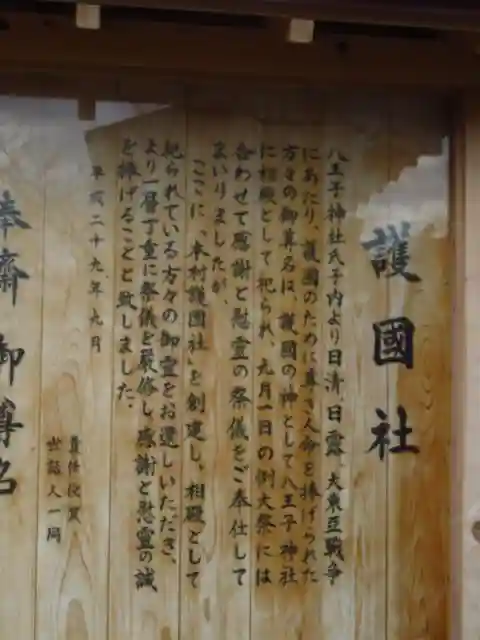 護國社
八王子神社氏子内より日清、日露、大東亞戦争
にあたり、護國のために尊き人命を捧げられた
方々の御尊名は、護國の神として八王子神社
に相殿として祀られ、九月一日の例大祭には
合わせて感謝と慰霊の祭儀をご奉仕して
まいりましたが、
ここに、本村護國社を創建し、相殿として
祀られている方々の御霊をお遷しいただき、
より一層丁重に祭儀を厳修し感謝と慰霊の誠
を捧げることと致しました。
平成二十九年九月
責任役員
世話人一同
奉齋御尊名